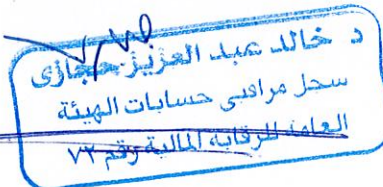 د خالد عبد العزيز حجازى
سجل مراقبى حسابات الهيئة
العامة للرقابة المالية رقم ٧٢